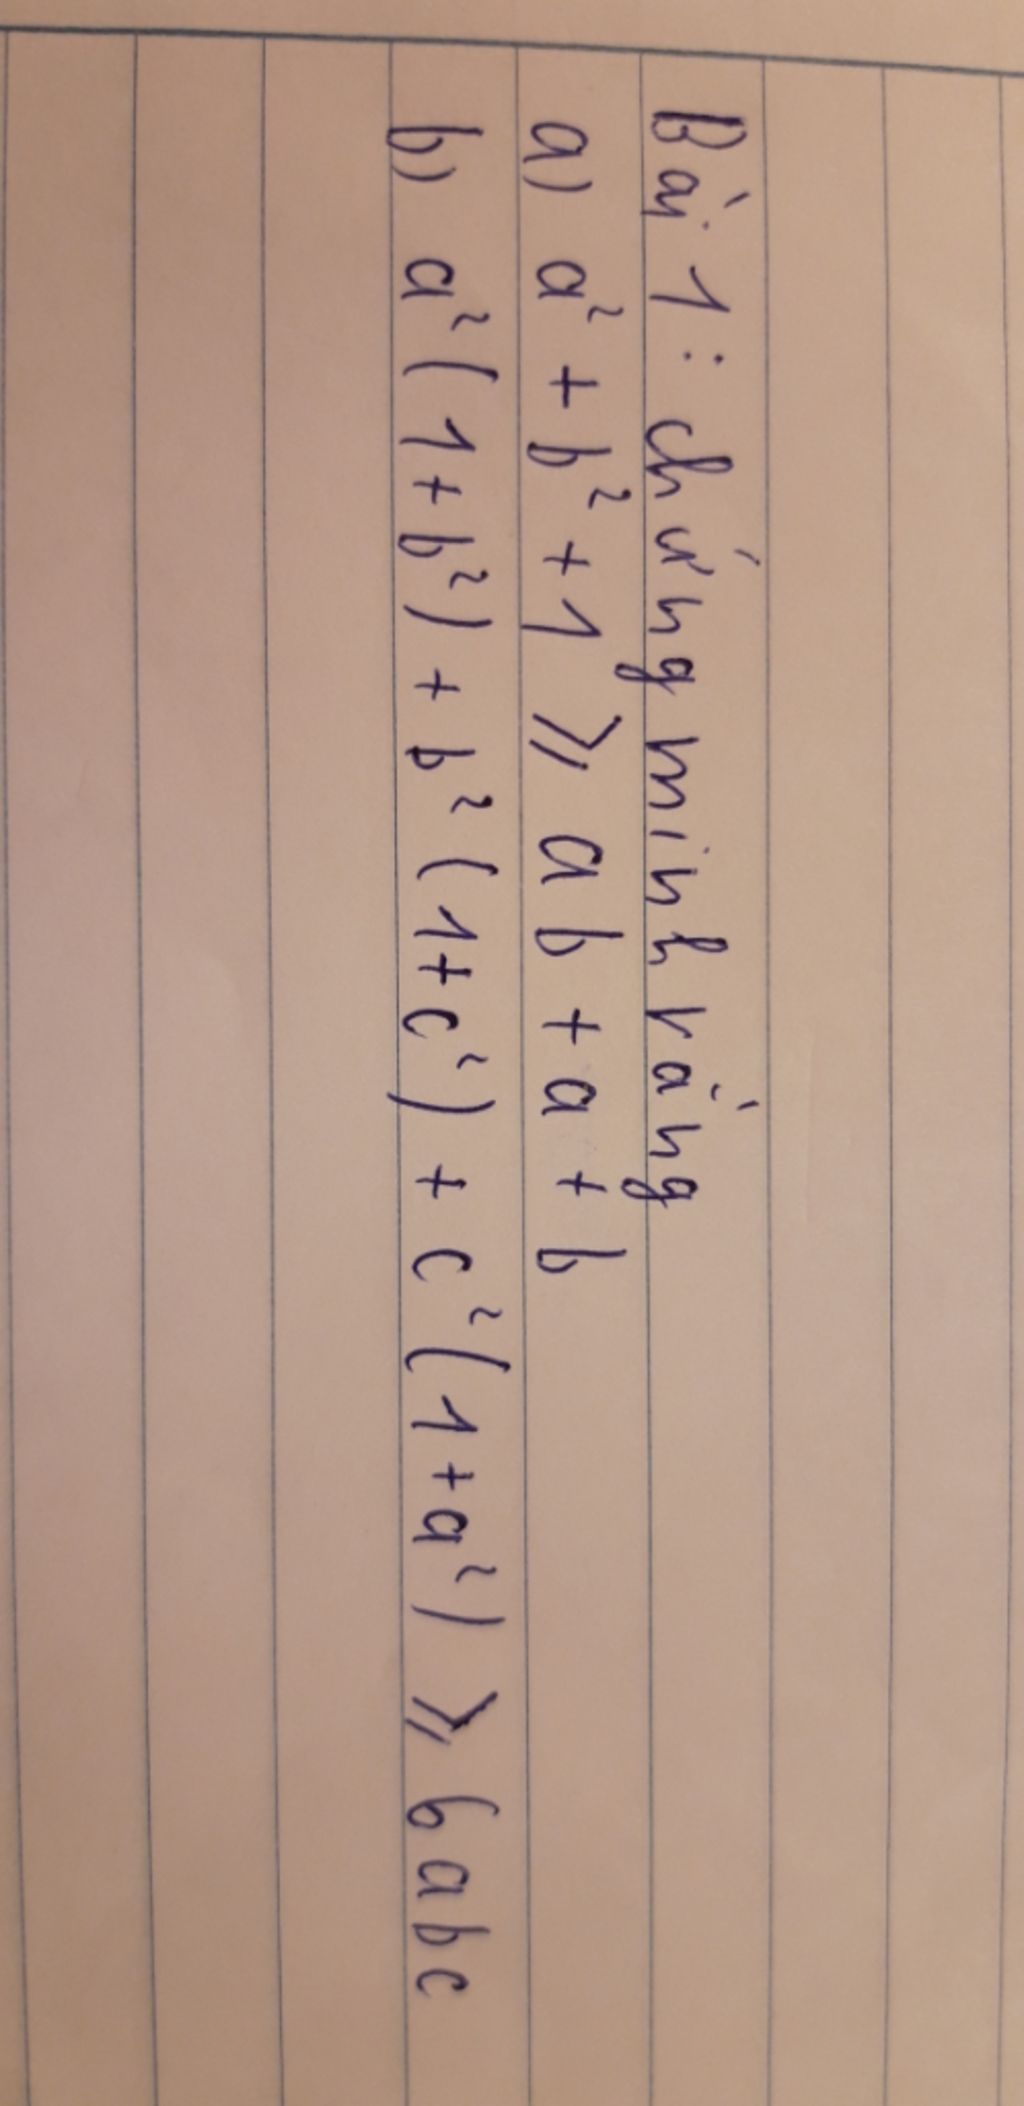 Bài 1: chứng minh rằng
a) a² + b² + 1 ⩾ ab + a + b
b) a² (1 + b²) + b² (1+c²) + c² (1 + a²) ⩾ 6abc